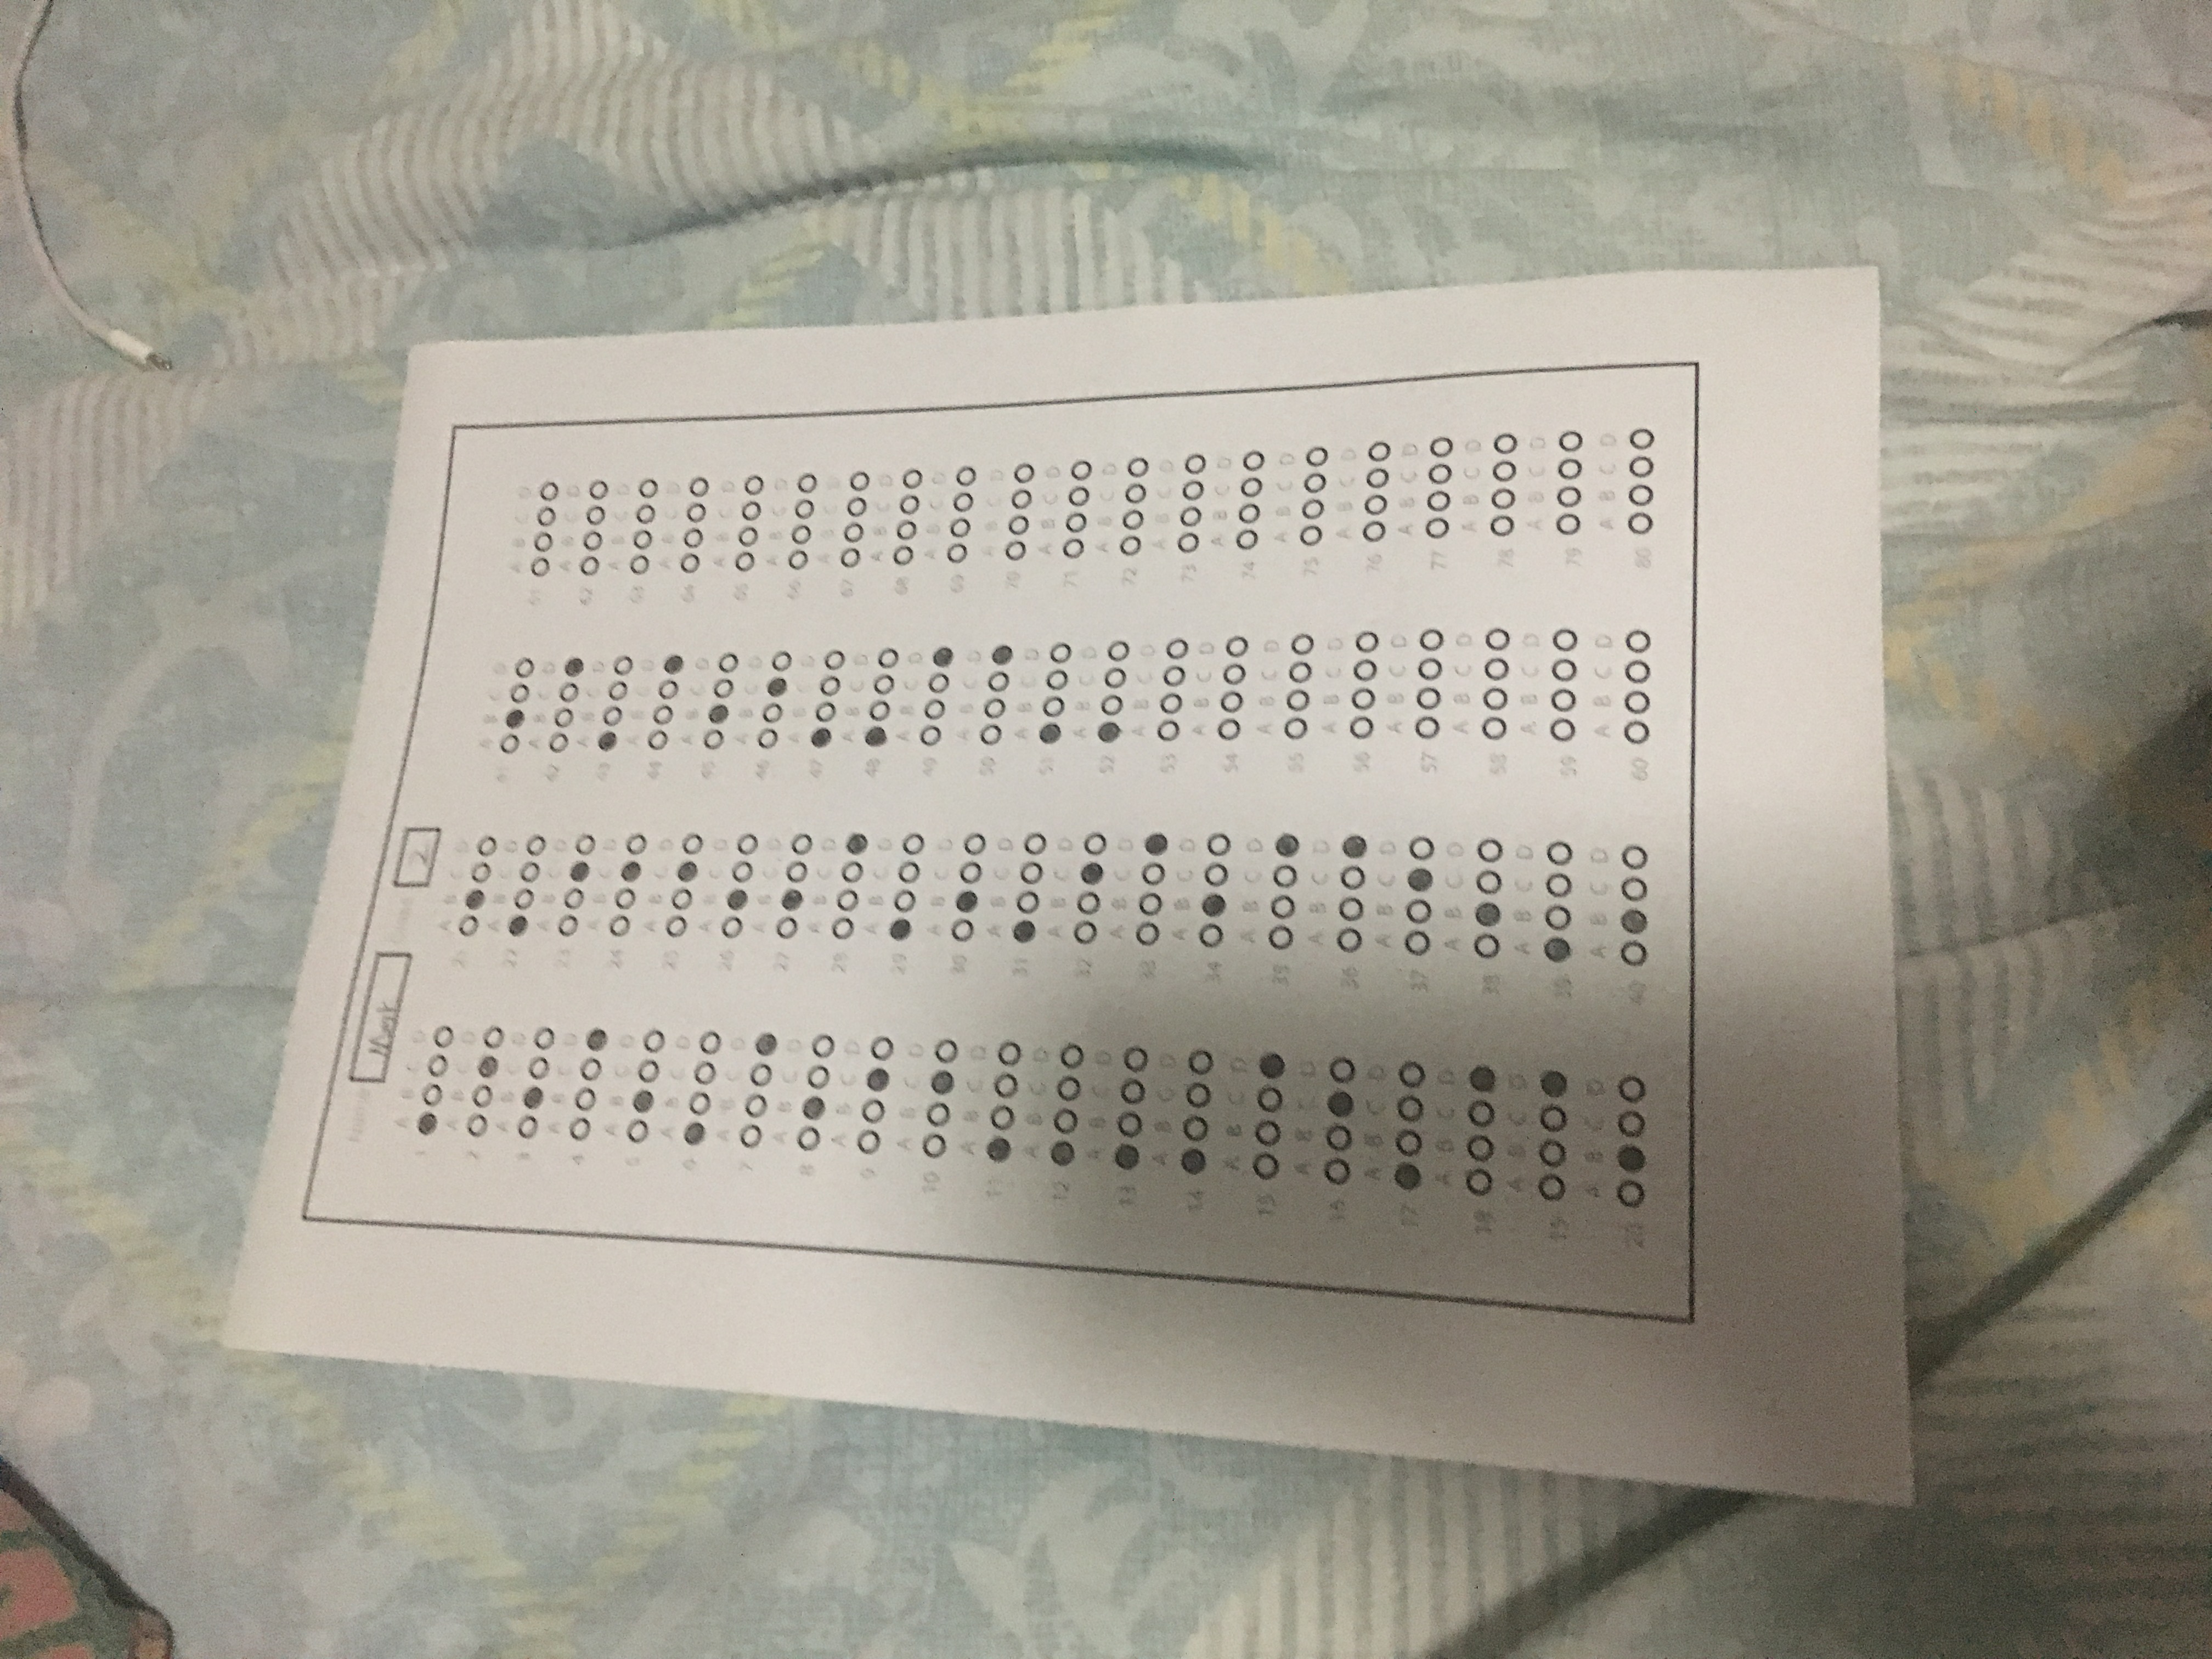 Name Mark 2
A B C D
1
A B C D
2
A B C D
3
A B C D
4
A B C D
5
A B C D
6
A B C D
7
A B C D
8
A B C D
9
A B C D
10
A B C D
11
A B C D
12
A B C D
13
A B C D
14
A B C D
15
A B C D
16
A B C D
17
A B C D
18
A B C D
19
A B C D
20
A B C D
21
A B C D
22
A B C D
23
A B C D
24
A B C D
25
A B C D
26
A B C D
27
A B C D
28
A B C D
29
A B C D
30
A B C D
31
A B C D
32
A B C D
33
A B C D
34
A B C D
35
A B C D
36
A B C D
37
A B C D
38
A B C D
39
A B C D
40
A B C D
41
A B C D
42
A B C D
43
A B C D
44
A B C D
45
A B C D
46
A B C D
47
A B C D
48
A B C D
49
A B C D
50
A B C D
51
A B C D
52
A B C D
53
A B C D
54
A B C D
55
A B C D
56
A B C D
57
A B C D
58
A B C D
59
A B C D
60
A B C D
61
A B C D
62
A B C D
63
A B C D
64
A B C D
65
A B C D
66
A B C D
67
A B C D
68
A B C D
69
A B C D
70
A B C D
71
A B C D
72
A B C D
73
A B C D
74
A B C D
75
A B C D
76
A B C D
77
A B C D
78
A B C D
79
A B C D
80